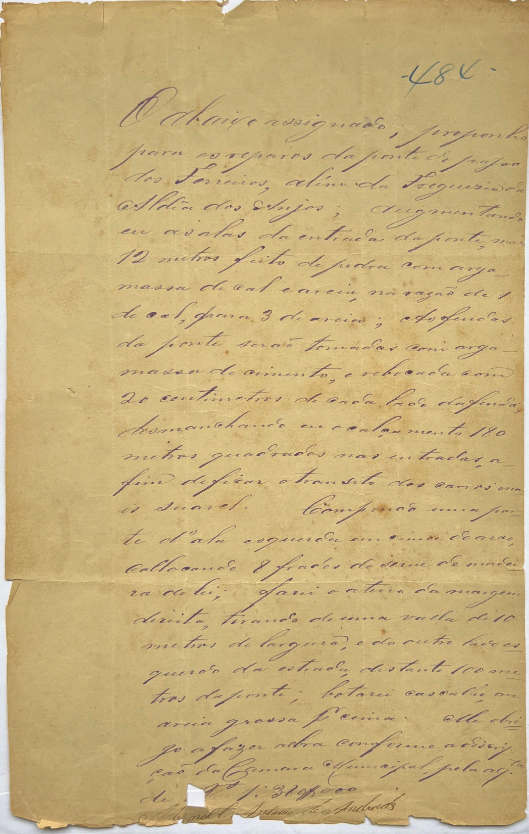 -484-
O abaixo assignado, proponho
para os reparos da ponte do passo
dos Ferreiros, alim da Freguezia da
Aldêa dos Anjos; augmentando
eu as alas da entrada da ponte, mais
12 metros feito de pedra com arga-
massa de cal e areia, na razão de 1
de cal, para 3 de areia; As fendas
da ponte serão tomadas com arga-
massa de cimento, e rebocada com
20 centimetros de cada lado da fenda,
desmanchando eu o calçamento 180
metros quadrados nas entradas, a-
fim de ficar o transito dos carros ma-
is suavel. Compondo uma par-
te d'ala esquerda em cima do arco,
collocando 8 frades de serne de madei-
ra de lei; farei o aterro da margem
direita, tirando de uma valla de 10
metros de largura, e do outro lado es-
querdo da estrada, distante 100 me-
tros da ponte; botarei cascalho ou
areia grossa em cima. Me obri-
go a fazer a obra conforme a
ção da Camara Municipal pela
de
Manoel Antonio de Andrade